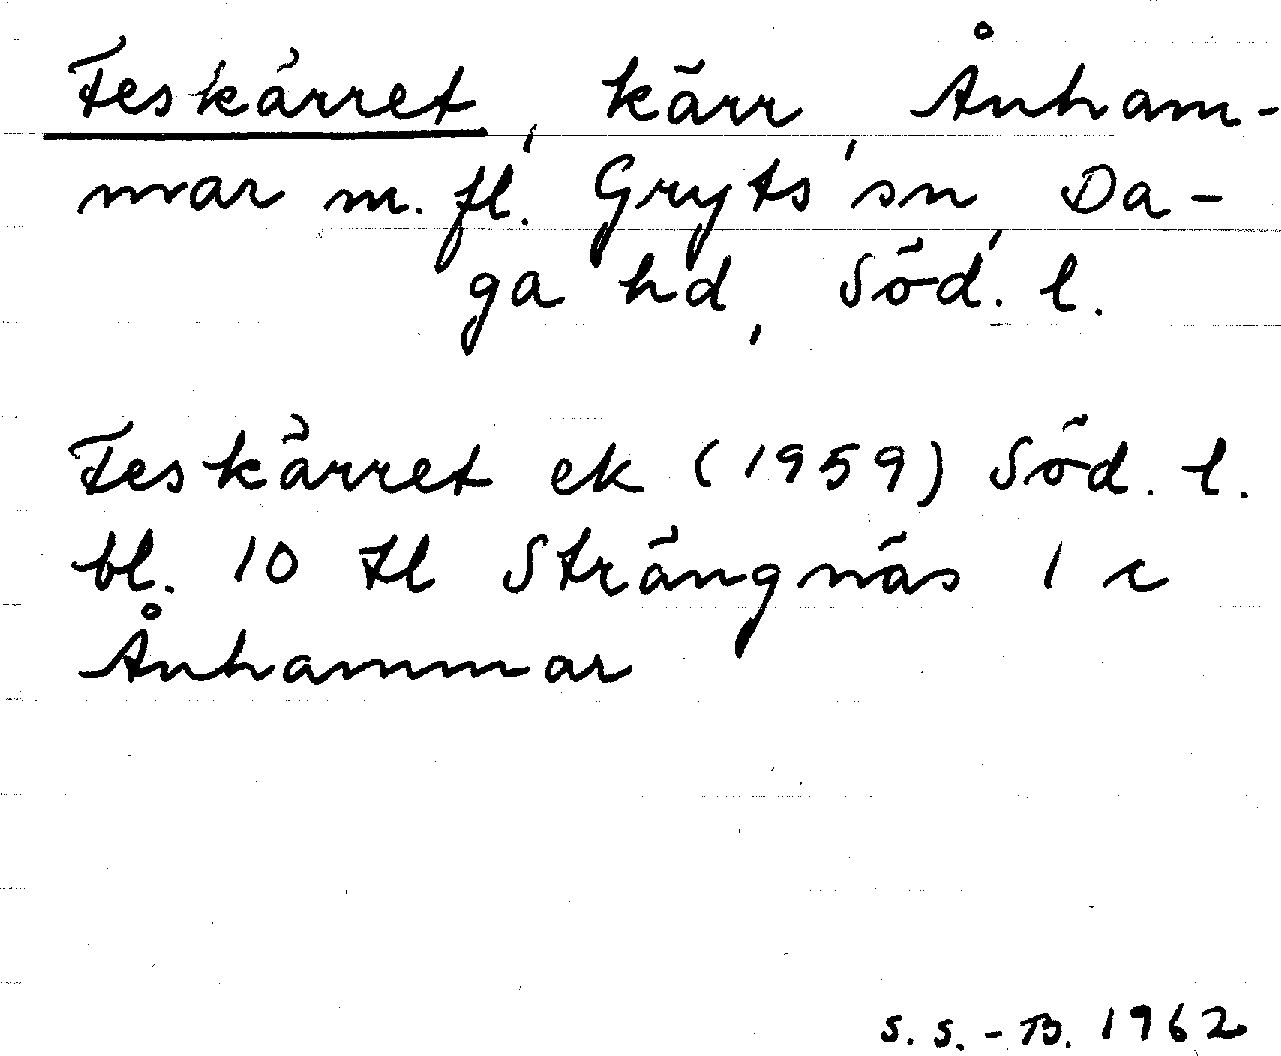 Feskärret, kärr, Ånham-
mar m. fl. Gryts sn, Da-
ga hd, Söd. l.
Feskärret ek (1959) Söd. l.
bl. 10 tl Strängnäs 1 c
Ånhammar
S. S.-B. 1962